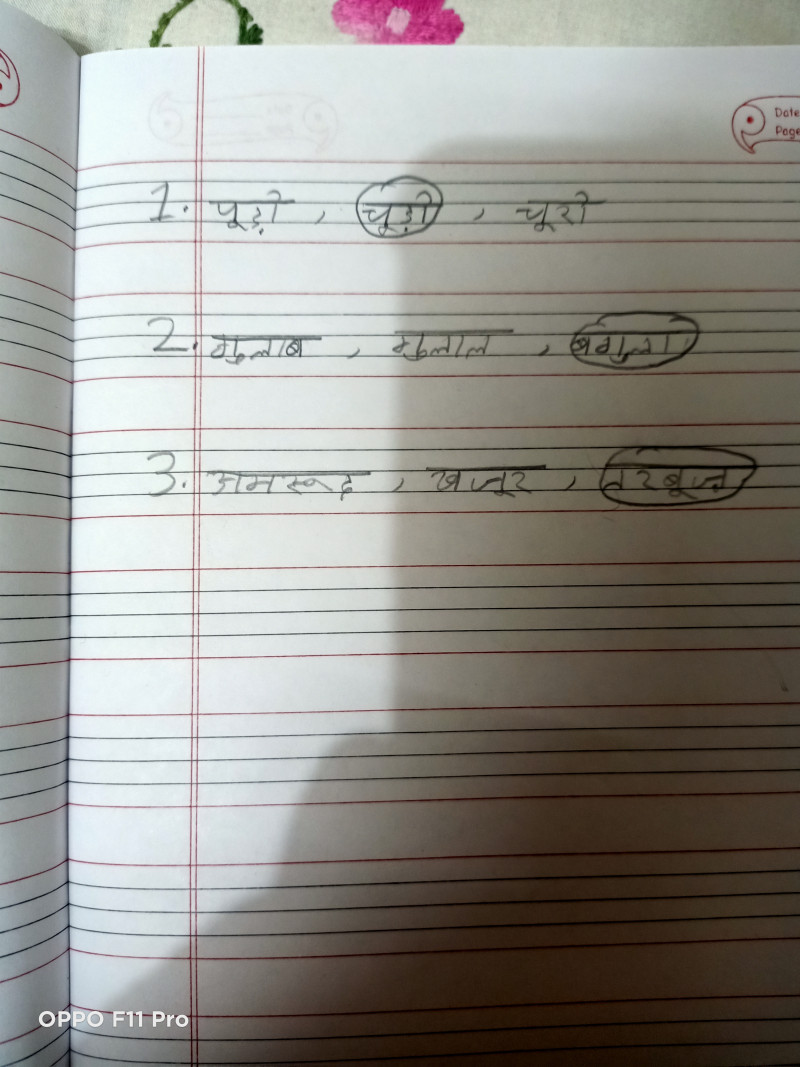 Date
Page
1. पूड़ी , चूड़ी , चूरी
2. गुलाब , गुलाल , बगुला
3. अमरूद , खजूर , तरबूज़
OPPO F11 Pro